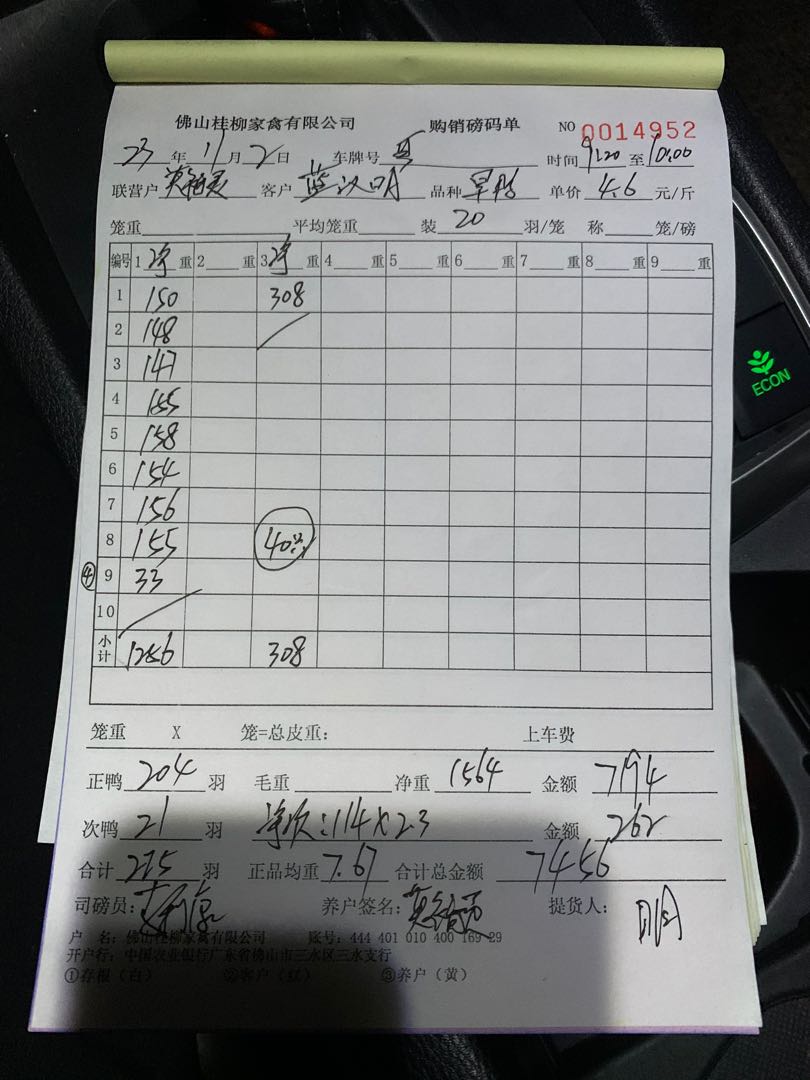 佛山桂柳家禽有限公司 购销磅码单 NO 0014952
23年11月2日 车牌号 时间 9:20 至 10:00
联营户 客户 蓝汉明 品种 单价 4.6 元/斤
笼重 平均笼重 装 20 羽/笼 称 笼/磅
编号 1 净 重 2 重 3 净 重 4 重 5 重 6 重 7 重 8 重 9 重
1 150 308
2 148
3 147
4 155
5 158
6 154
7 156
8 155 40只
④ 9 33
10
小计 1256 308
笼重 X 笼=总皮重: 上车费
正鸭 204 羽 毛重 净重 1564 金额 7194
次鸭 21 羽 净次:114×2.3 金额 262
合计 225 羽 正品均重 7.67 合计总金额 7456
司磅员: 养户签名: 提货人: 明
户 名: 佛山桂柳家禽有限公司 账号: 444 401 010 400 169 29
开户行: 中国农业银行广东省佛山市三水区三水支行
①存根(白) ②客户(红) ③养户(黄)
ECON